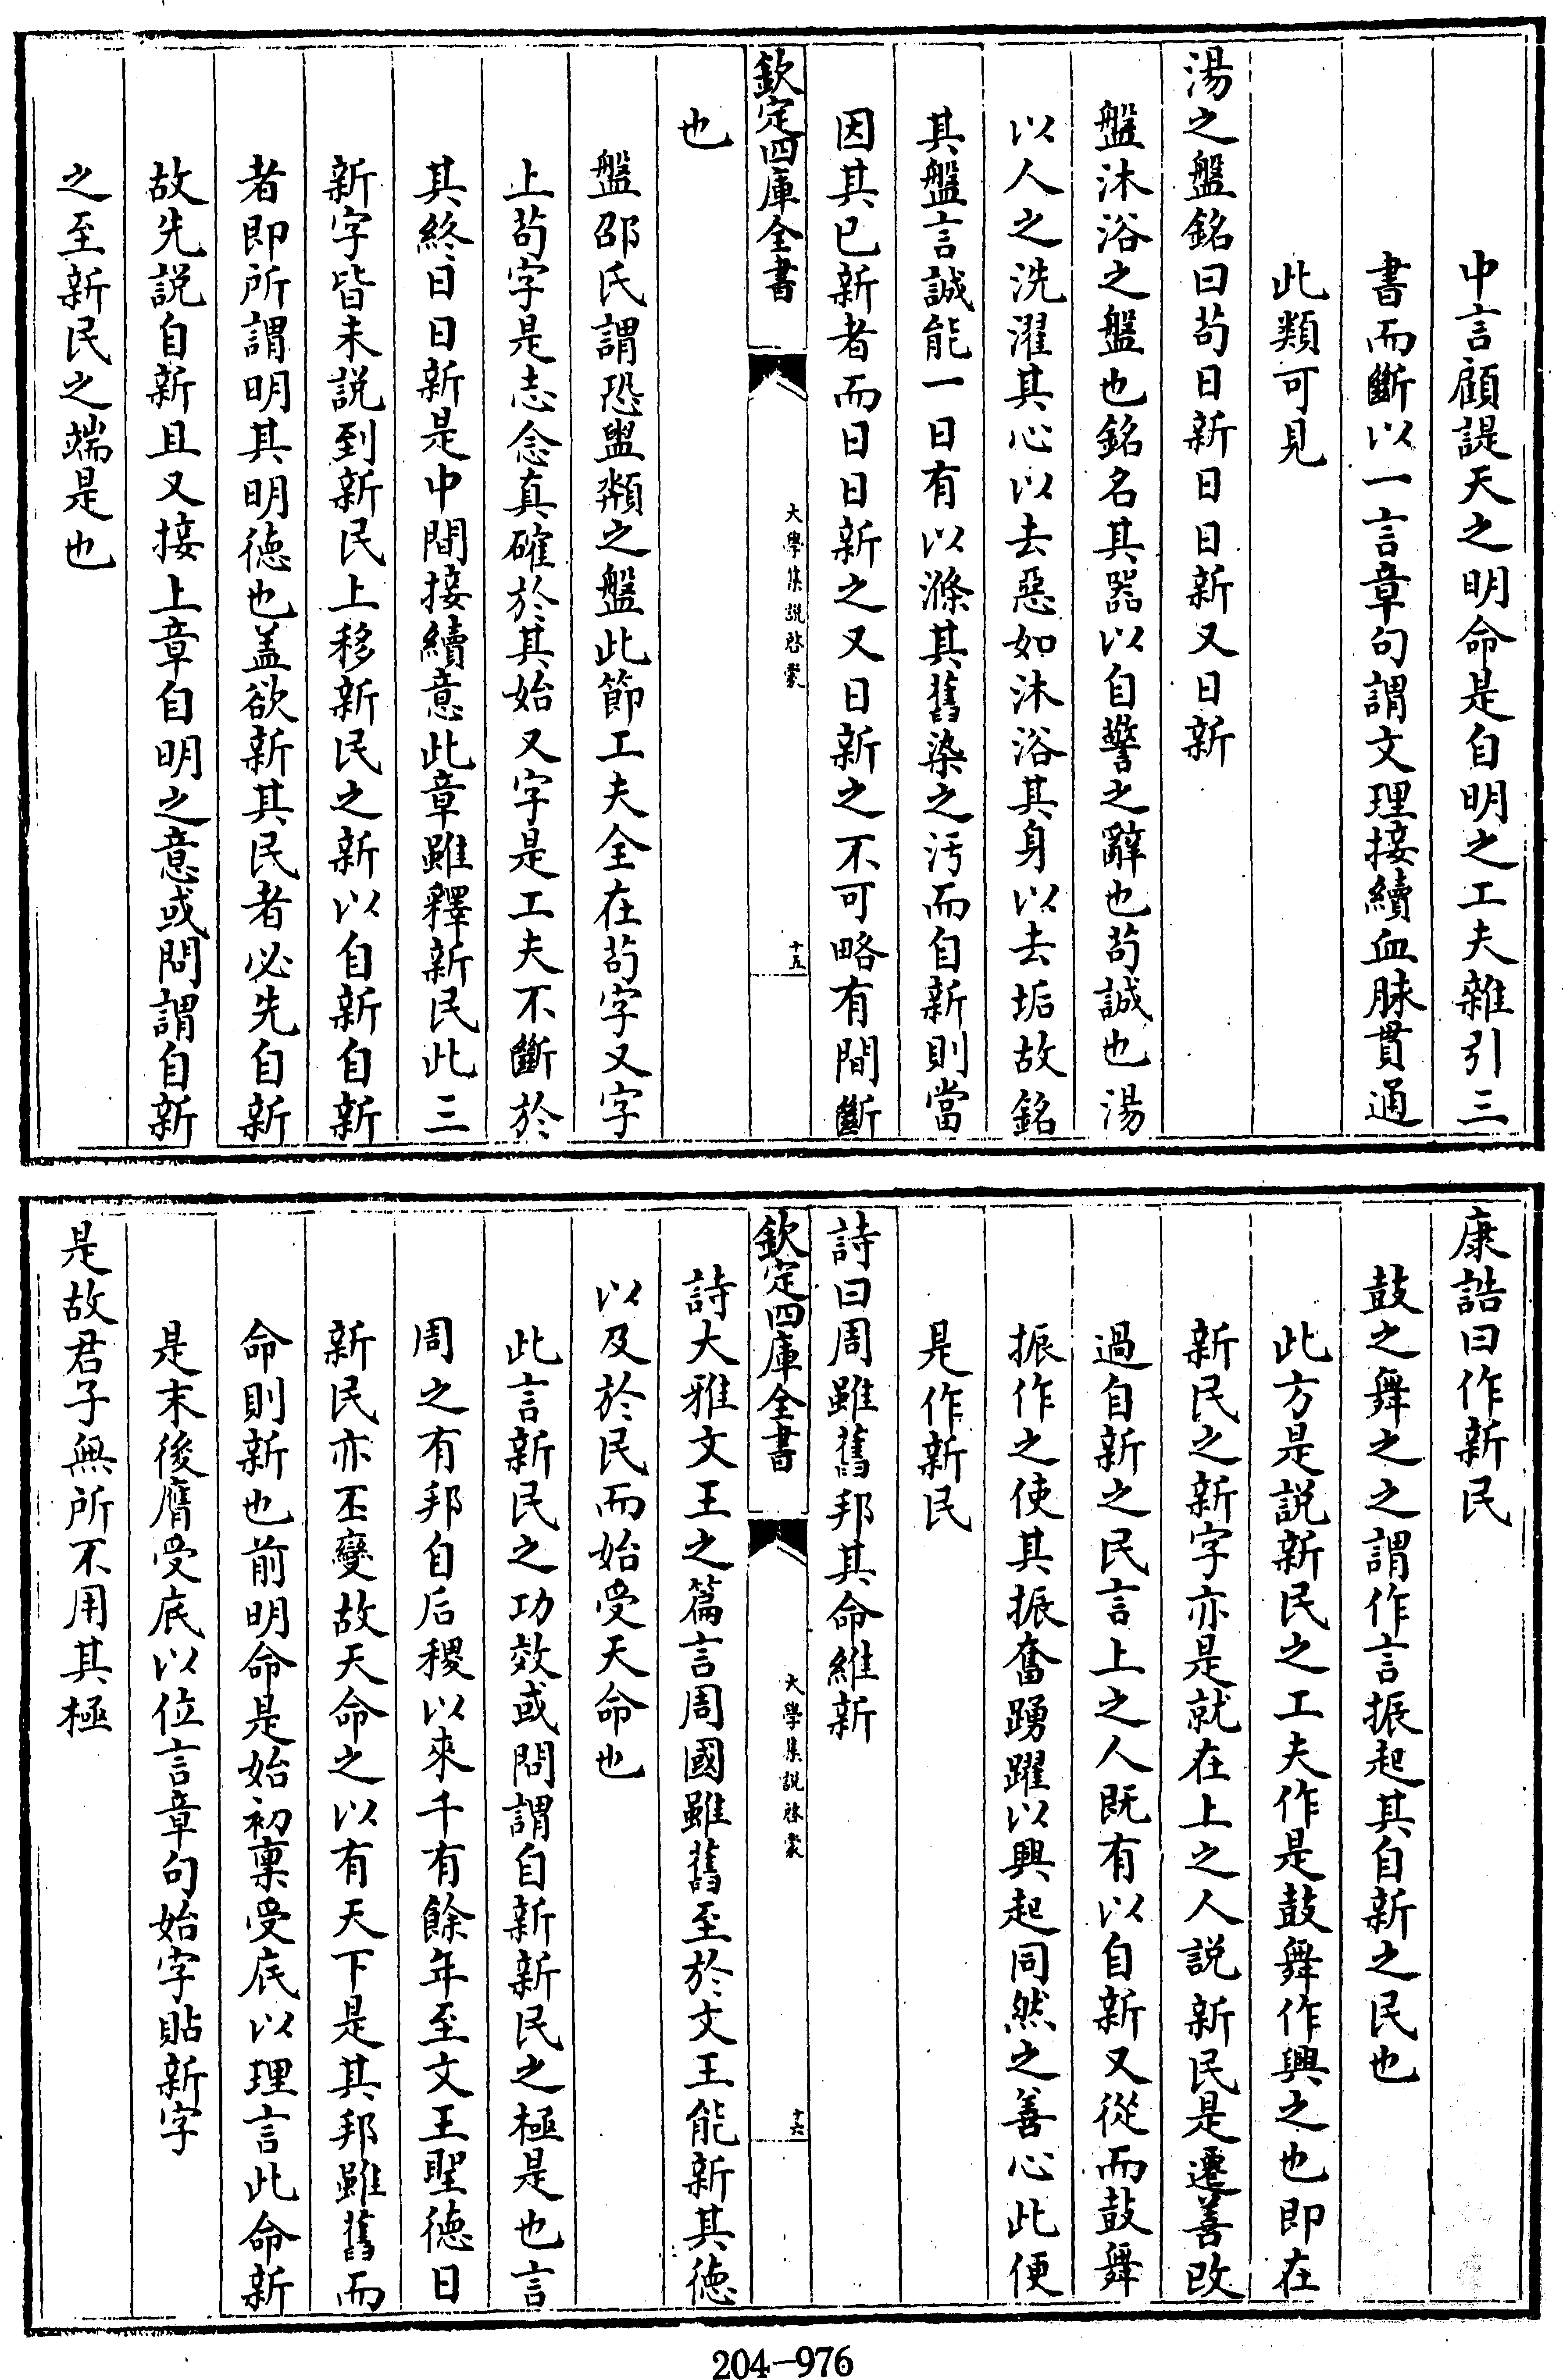 中言顧諟天之明命是自明之工夫雜引三
書而斷以一言章句謂文理接續血脉貫通
此類可見
湯之盤銘曰苟日新日日新又日新
盤沐浴之盤也銘名其器以自警之辭也苟誠也湯
以人之洗濯其心以去惡如沐浴其身以去垢故銘
其盤言誠能一日有以滌其舊染之汚而自新則當
因其已新者而日日新之又日新之不可略有間斷
欽定四庫全書
大學集説啓蒙
十五
也
盤邵氏謂恐盥頮之盤此節工夫全在苟字又字
上苟字是志念真確於其始又字是工夫不斷於
其終日日新是中間接續意此章雖釋新民此三
新字皆未説到新民上移新民之新以自新自新
者即所謂明其明德也盖欲新其民者必先自新
故先説自新且又接上章自明之意或問謂自新
之至新民之端是也
康誥曰作新民
鼓之舞之之謂作言振起其自新之民也
此方是説新民之工夫作是鼓舞作興之也即在
新民之新字亦是就在上之人説新民是遷善改
過自新之民言上之人既有以自新又從而鼓舞
振作之使其振奮踴躍以興起同然之善心此便
是作新民
詩曰周雖舊邦其命維新
欽定四庫全書
大學集説啓蒙
十六
詩大雅文王之篇言周國雖舊至於文王能新其德
以及於民而始受天命也
此言新民之功效或問謂自新新民之極是也言
周之有邦自后稷以來千有餘年至文王聖德日
新民亦丕變故天命之以有天下是其邦雖舊而
命則新也前明命是始初稟受底以理言此命新
是末後膺受底以位言章句始字貼新字
是故君子無所不用其極
204-976